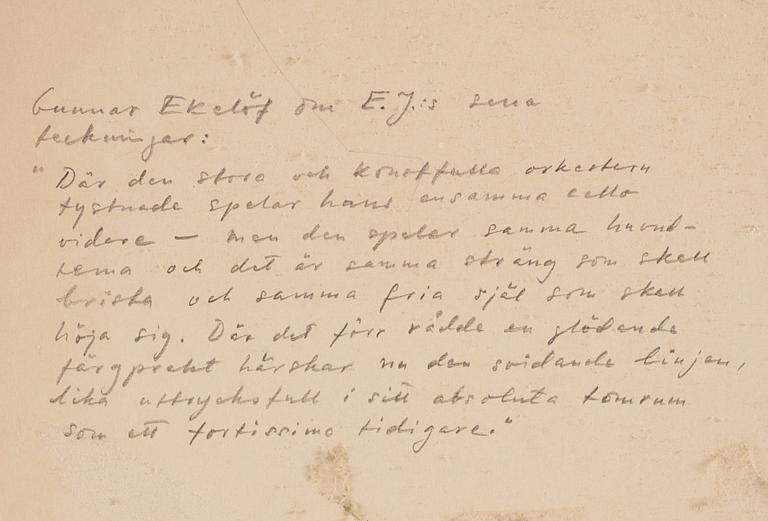 Gunnar Ekelöf om E.J.:s sena
teckningar:
"Där den stora och konstfulla orkestern
tystnade spelar hans ensamma cello
vidare – men den spelar samma huvud-
tema och det är samma sträng som skall
brista och samma fria själ som skall
höja sig. Där det förr rådde en glödande
färgprakt härskar nu den svidande linjen,
lika uttrycksfull i sitt absoluta tomrum
som ett fortissimo tidigare."